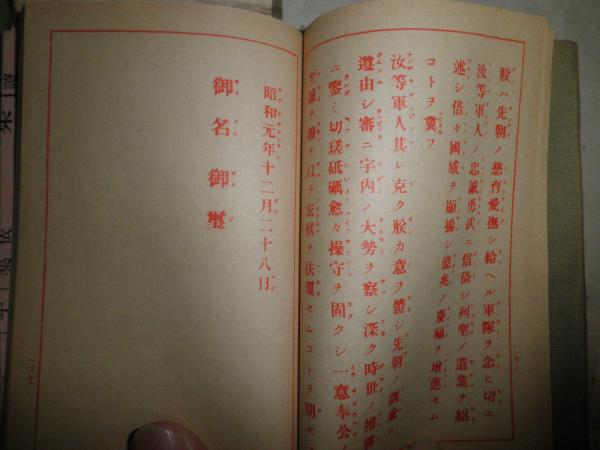 朕ハ先朝ノ慈育愛撫シ給ヘル軍隊ヲ念ヒ切ニ
汝等軍人ノ忠誠勇武ニ信倚シ列聖ノ遺業ヲ紹
述シ倍々國威ヲ顯揚シ億兆ノ慶福ヲ增進セム
コトヲ冀フ
汝等軍人其レ克ク朕カ意ヲ體シ先朝ノ訓諭ニ
遵由シ審ニ宇內ノ大勢ヲ察シ深ク時世ノ推移
ニ鑒ミ切瑳砥礪愈々操守ヲ固クシ一意奉公ノ
誠ヲ以テ宏猷ヲ扶翼セムコトヲ期セ
二十六
昭和元年十二月二十八日
御名御璽
二十七